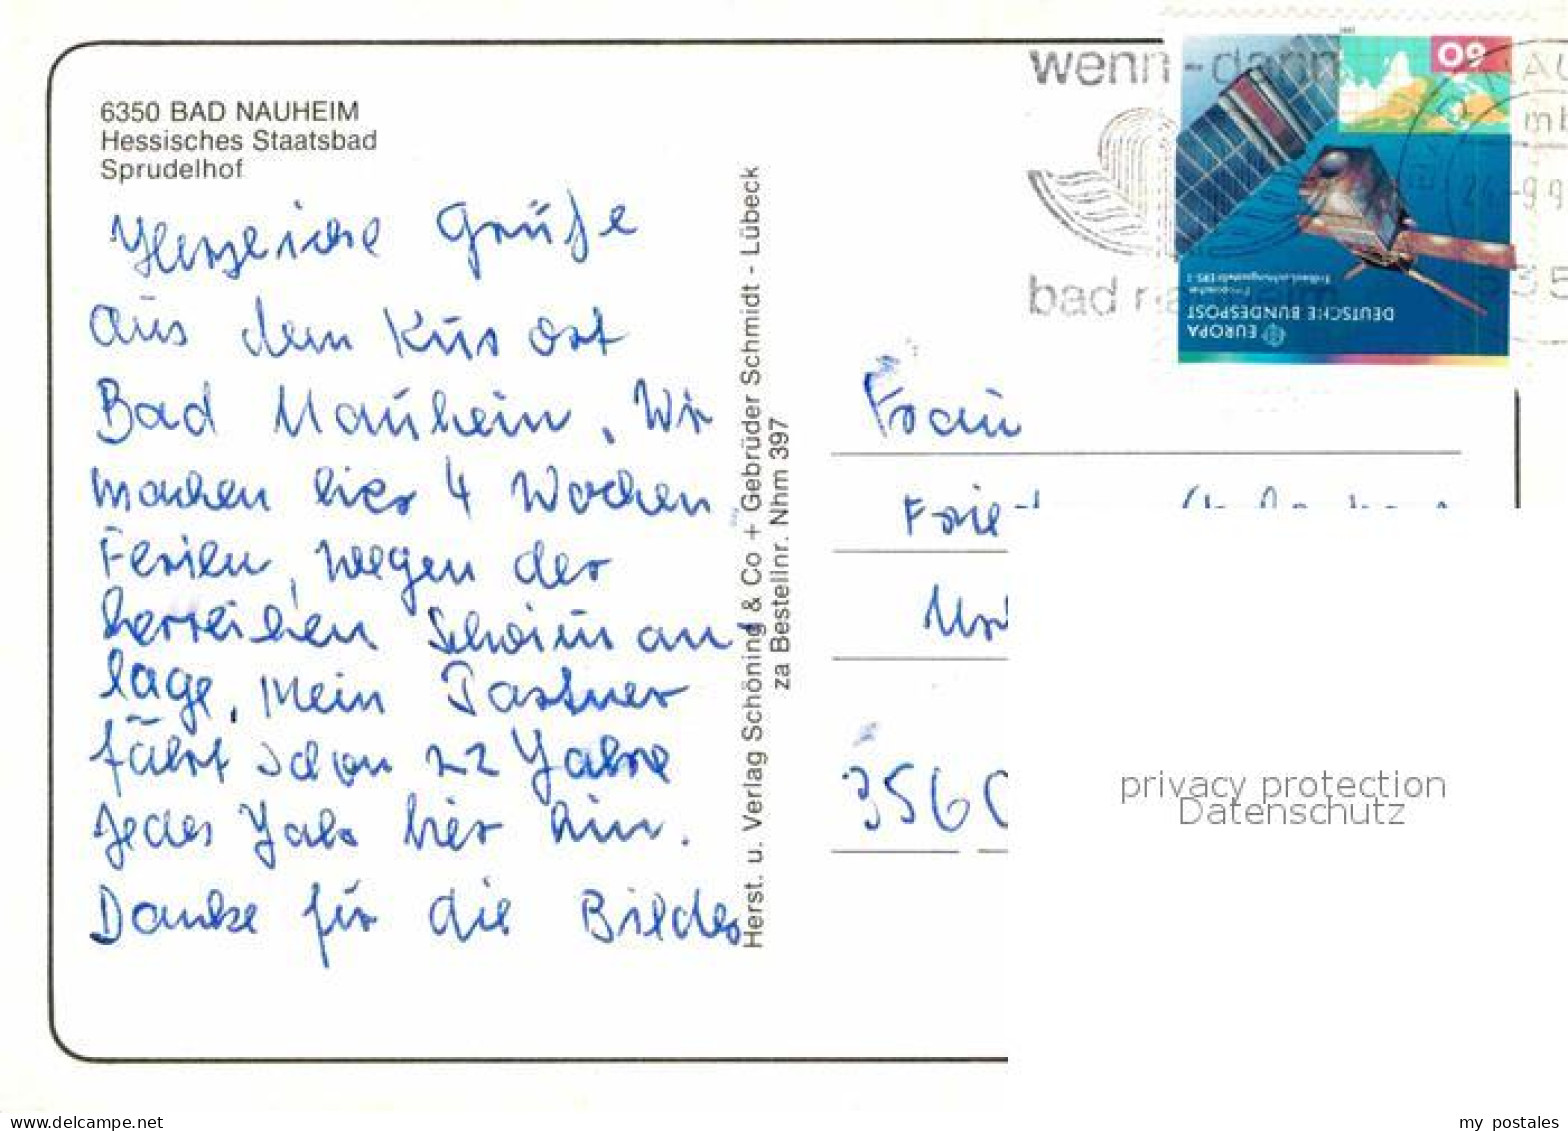 6350 BAD NAUHEIM
Hessisches Staatsbad
Sprudelhof
Herzliche Grüße
aus dem Kur ort
Bad Nauheim. Wir
machen hier 4 Wochen
Ferien, wegen der
herrlichen Schwim an
lage, Mein Partner
fährt schon 22 Jahre
Jedes Jahr hier hin.
Danke für die Bilder
Herst. u. Verlag Schöning & Co + Gebrüder Schmidt - Lübeck
za Bestellnr. Nhm 397
wenn - dann
bad nauheim
60
EUROPA
DEUTSCHE BUNDESPOST
Europäischer
Erdbeobachtungssatellit ERS-1
Frau
3560
privacy protection
Datenschutz
www.delcampe.net
my_postales